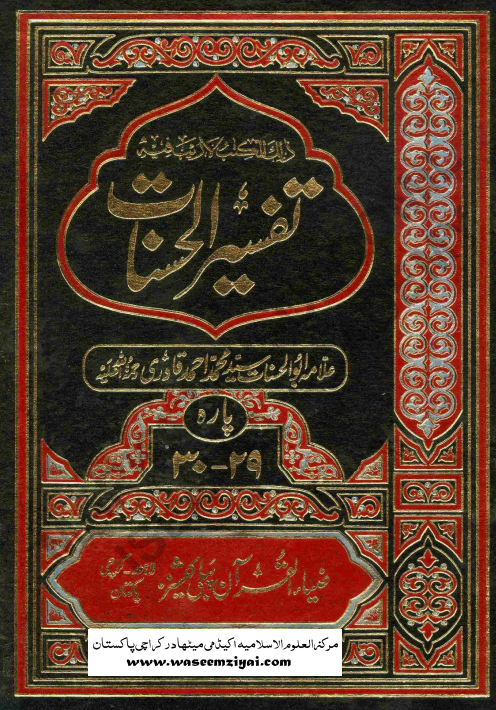 ذالك الكتب لا ريب فيه
تفسیر الحسنات
علامہ ابوالحسنات سید محمد احمد قادری رحمۃ اللہ علیہ
پارہ
۲۹-۳۰
ضیاء القرآن پبلی کیشنز
لاہور - کراچی
پاکستان
مرکز العلوم الاسلامیہ اکیڈمی میٹھادر کراچی پاکستان
www.waseemziyai.com